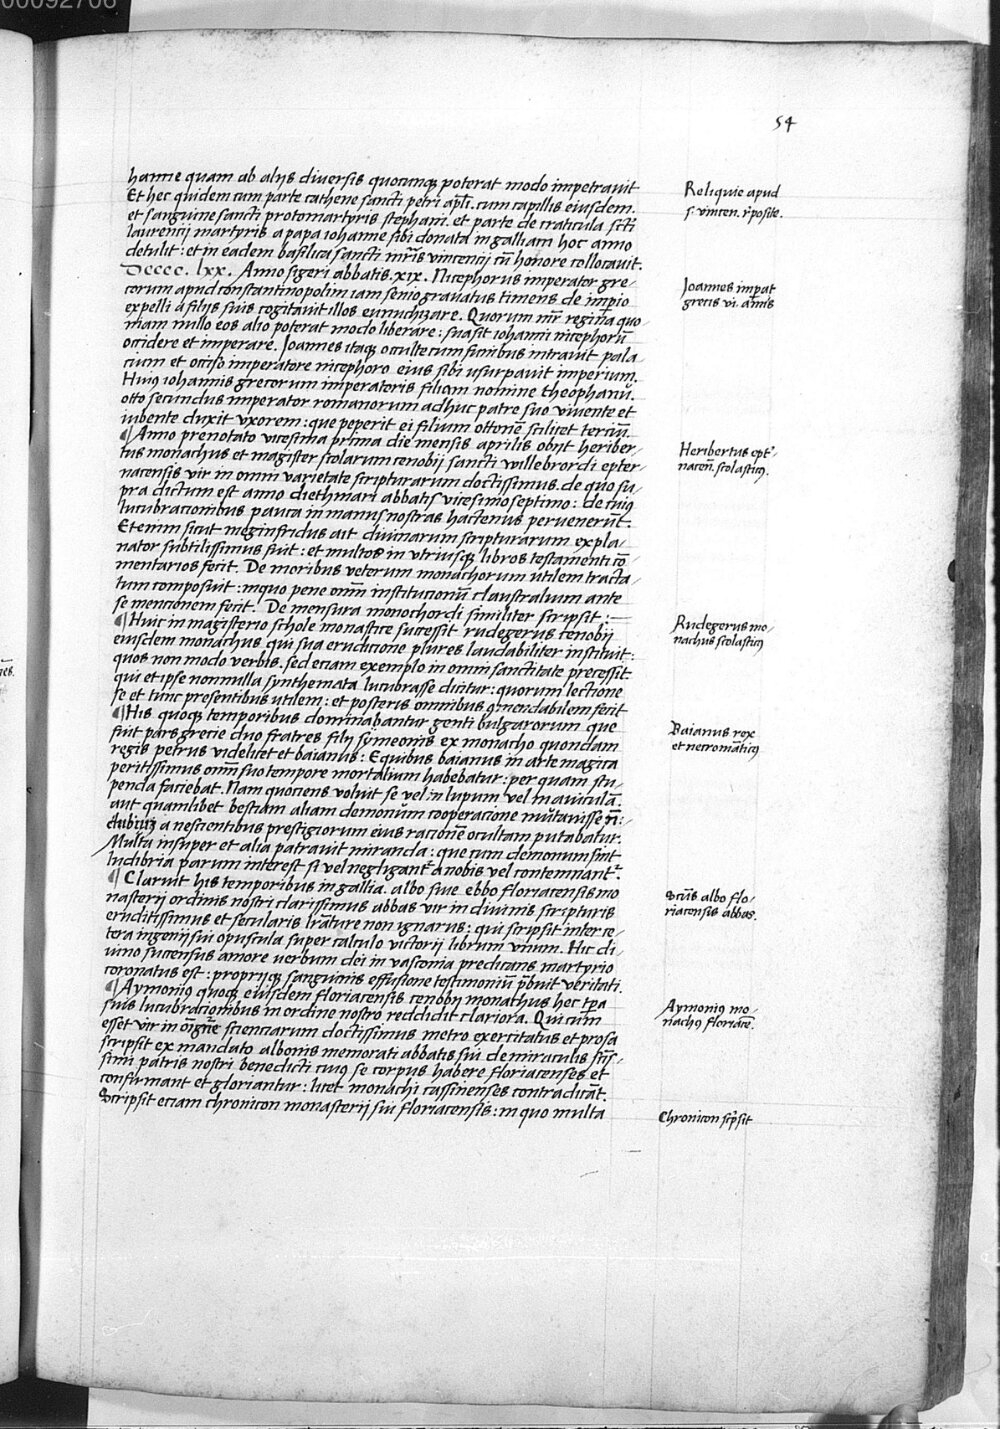 54
hanne quam ab alijs diversis quocunq; poterat modo impetravit
Et hec quidem cum parte cathene sancti petri apl̃i. cum capillis eiusdem.
et sanguine sancti protomartyris stephani. et parte de craticula sc̃ti
laurencij martyris a papa iohanne sibi donata in galliam hoc anno
detulit: et in eadem basilica sancti mr̃is vincencij cũ honore collocavit.
Reliquie apud
s. vincen. r̃posite.
Dcccc. lxx. Anno sigeri abbatis. xix. Nicephorus imperator gre-
corum apud constantinopolim iam senio gravatus timens de impio
expelli a filijs suis cogitavit illos eunuchizare. Quorum mr̃ regina quo-
niam nullo eos alio poterat modo liberare: suasit iohanni nicephorũ
occidere et imperare. Joannes itaq; occulte cum funibus intravit pala-
cium et occiso imperatore nicephoro eius sibi usurpavit imperium.
Huiꝰ iohannis grecorum imperatoris filiam nomine theophanũ.
otto secundus imperator romanorum adhuc patre suo vivente et
iubente duxit vxorem: que peperit ei filium ottonẽ scilicet terciũ.
Joannes imp̃at
grecis vi. annis
¶ Anno prenotato vicesima prima die mensis aprilis obijt heriber-
tus monachus et magister scolarum cenobij sancti willebrordi epter-
nacensis vir in omni varietate scripturarum doctissimus. de quo su-
pra dictum est anno diethmari abbatis vicesimo septimo: de cuiꝰ
lucubracionibus pauca in manus nostras hactenus pervenerũt.
Etenim sicut meginfridus ait divinarum scripturarum expla-
nator subtilissimus fuit: et multos in utriusq; libros testamenti cõ-
mentarios fecit. De moribus veterum monachorum utilem tracta-
tum composuit: in quo pene om̃m institucionũ claustralium ante
se mencionem fecit. De mensura monochordi similiter scripsit:
Heribertus ept̃-
nacen̄. scolasticꝰ.
¶ Huic in magisterio schole monastice successit rudegerus cenobij
eiusdem monachus qui sua erudicione plures laudabiliter instituit:
quos non modo verbis. sed eciam exemplo in omni sanctitate precessit.
qui et ipse nonnulla synthemata lucubrasse dicitur: quorum lectione
se et tunc presentibus utilem: et posteris omnibus ꝯmendabilem fecit
Rudegerus mo-
nachus scolasticꝰ
¶ His quoq; temporibus dominabantur genti bulgarorum que
fuit pars grecie duo fratres filij symeonis ex monacho quondam
regis petrus videlicet et baianus: E quibus baianus in arte magica
peritissimus om̃m suo tempore mortalium habebatur: per quam stu-
penda faciebat. Nam quociens voluit se vel in lupum vel in aviculã.
aut quamlibet bestiam aliam demonũm cooperacione mutavisse ñ:
dubiũ; a nescientibus prestigiorum eius racionẽ ocultam putabatur.
Multa insuper et alia patravit miranda: que cum demonum sint
ludibria parum interest si vel negligant̃ a nobis vel contemnant̃.
Baianus rex
et necromãticꝰ
¶ Claruit his temporibus in gallia. albo sive ebbo floriacensis mo
nasterij ordinis nostri clarissimus abbas vir in divinis scripturis
eruditissimus et secularis lr̃ature non ignarus: qui scripsit inter ce-
tera ingenij sui opuscula super calculo victorij librum vnum. Hic di-
vino succensus amore verbum dei in vasconia predicans martyrio
coronatus est: proprijq; sanguinis effusione testimoniũ p̃buit veritati.
Sct̃us albo flo-
riacensis abbas.
¶ Aymoniꝰ quoq; eiusdem floriacensis cenobij monachus hec tp̃a
suis lucubracionibus in ordine nostro reddidit clariora. Qui cum
esset vir in om̃igñe scienciarum doctissimus metro exercitatus et prosa
scripsit ex mandato albonis memorati abbatis sui de miraculis sc̃tis-
simi patris nostri benedicti cuiꝰ se corpus habere floriacenses et
confirmant et gloriantur: licet monachi cassinenses contradicãt.
Scripsit eciam chronicon monasterij sui floriacensis: in quo multa
Aymoniꝰ mo-
nachꝰ floriacẽ.
Chronicon scp̃sit